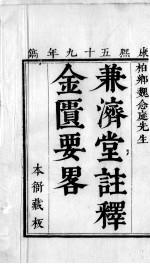 康熙五十九年鐫
柏鄉魏念庭先生
兼濟堂註釋
金匱要畧
本衙藏板